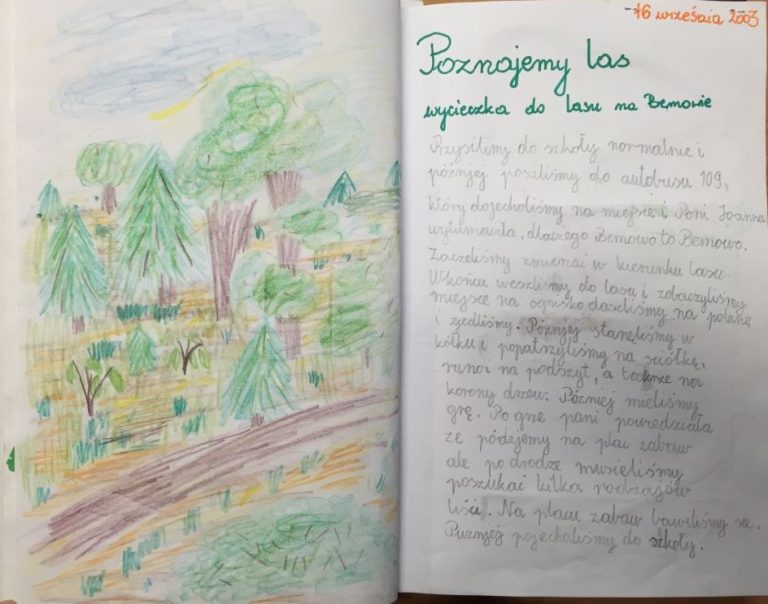 16 września 2003
Poznajemy las
wycieczka do lasu na Bemowie
Przyszliśmy do szkoły normalnie i
późnjej poszliśmy do autobusu 109,
który dojechaliśmy na miejsce i Pani Joanna
wytłumaczła, dlaczego Bemowo to Bemowo.
Zaczeliśmy zmierzać w kierunku lasu.
Wkońcu weszliśmy do lasu i zobaczyliśmy
miejsce na ognisko daszliśmy na polanę
i zjedliśmy. Późnjej staneliśmy w
kółku i popatrzyliśmy na sciółkę,
runo i na podszyt, a także na
korony drzew. Późnjej mieliśmy
grę. Po grze pani powiedziała
że pódzjemy na plac zabaw
ale po drodze musieliśmy
poszukać kilka rodzajów
liści. Na placu zabaw bawiliśmy się.
Puznjej pojechaliśmy do szkoły.